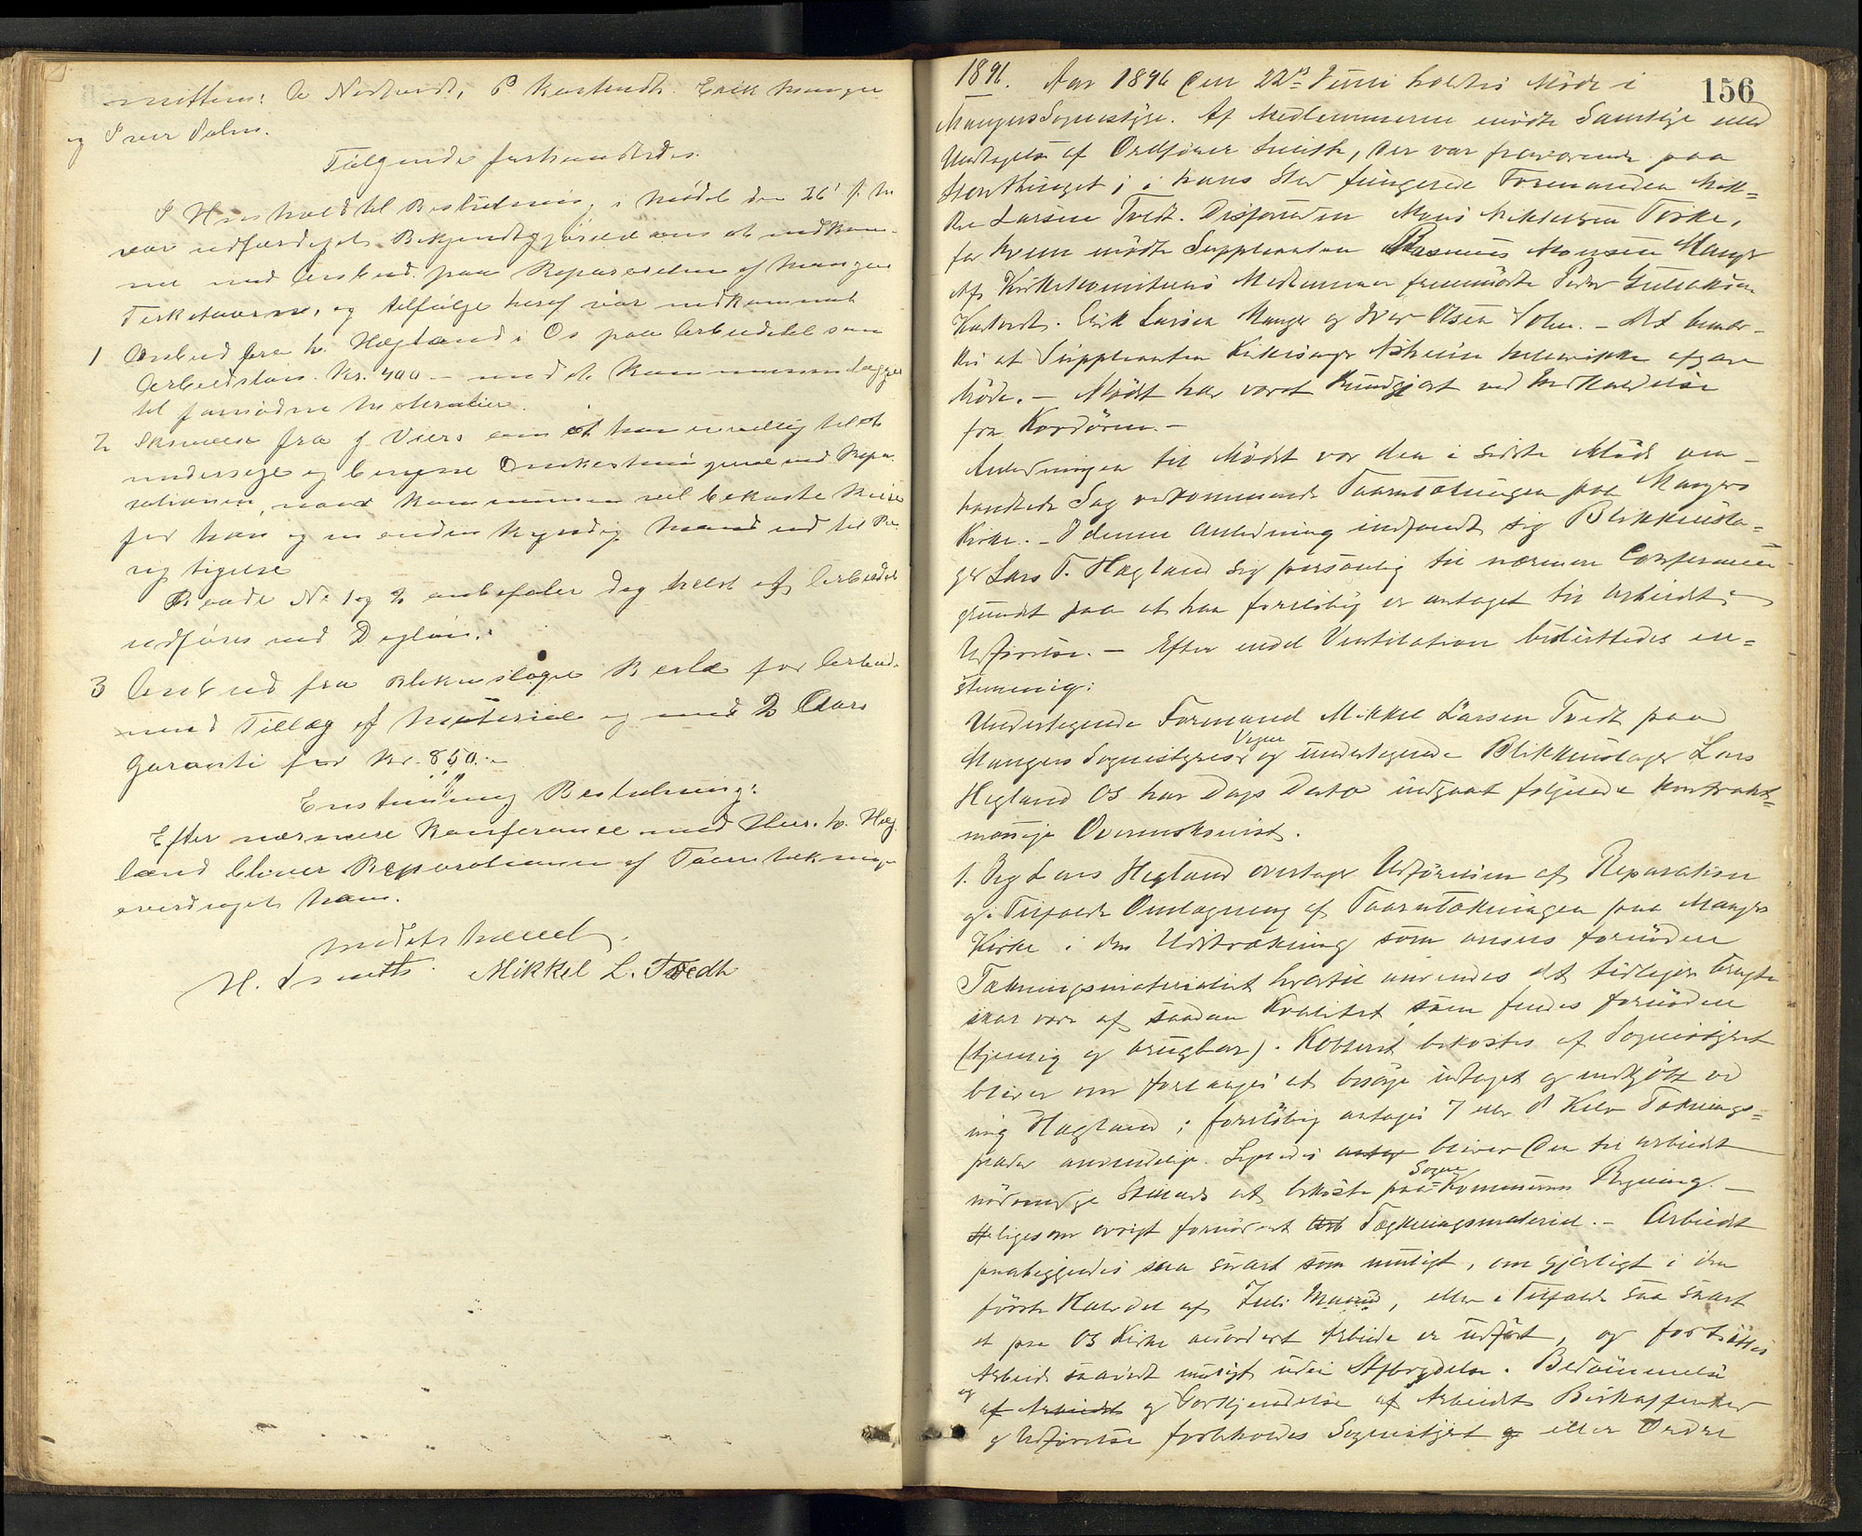 mitteen: A Nordvedt, P Kartvedt. Erik Manger
og Iver Solem.
Følgende forhandledes.
I Henhold til Beslutning i Mødet den 26' f. M.
var udfærdiget Bekjendtgjørelse om at indkom-
me med Anbud paa Reparationen af Manger
Kirketaarn, og tilfølge heraf var indkommet
1 Anbud fra L. Hegland i Os paa Arbeidet som
Arbeidsløn Kr. 400 – med at Kommunen lægger
til fornødne Materialier.
2 Skrivelse fra J. Viers om at han er villig til at
undersøge og besigne Omkostningerne ved Repa-
rationen, naar Kommunen vil bekoste Reise
for han og en anden kyndig Mand ud til Be-
sigtigelse
Baade No 1 og 2 anbefaler dog helst at Arbeidet
udføres ved Dagløn.
3 Anbud fra Blikkenslager Berle for Arbeide
med Tillæg af Materiale og med 2 Aars
Garanti for Kr. 850.–
Enstemmig Beslutning:
Efter nærmere Konferance med Hr. L. Heg-
land bliver Reparationen af Taarntækningen
overdraget ham.
Mødet hævet.
H. Smith. Mikkel L. Tvedt
156
1896. Aar 1896 den 22de Juni holdtes Møde i
Mangers Sognestyre. Af Medlemmerne mødte Samtlige med
Undtagelse af Ordfører Smith, der var fraværende paa
Storthinget; i hans Sted fungerede Formanden Mik=
kel Larsen Tvedt. Desforuden Mons Mikkelsen Toske,
for hvem mødte Suppleanten Rasmus Monsen Manger
Af Kirkekomiteens Medlemmer fremmødte Peder Gulaksen
Kartvedt. Erik Larsen Manger og Iver Olsen Solem. – Det bemær-
kes at Suppleanten Kirkesanger Askheim ikke afgav
Møde. – Mødet har været kundgjort ved Indkaldelse
fra Kordøren. –
Anledningen til Mødet var den i sidste Møde om-
handlede Sag vedkommende Taarntækningen paa Mangers
Kirke. – I denne Anledning indfandt sig Blikkensla=
ger Lars T. Hegland sig personlig til nærmere Conferance
grundet paa at han foreløbig er antaget til Arbeidets
Udførelse. – Efter endel Ventilation besluttedes en=
stemmig:
Undertegnede Formand Mikkel Larsen Tvedt paa
Mangers Sognestyres Vegne og undertegnede Blikkenslager Lars
Hegland Os har Dags Dato indgaaet følgende kontrakt=
mæssige Overenskomst.
1. Jeg Lars Hegland overtager Udførelsen af Reparation
og i Tilfælde Omlægning af Taarntækningen paa Mangers
Kirke i den Udstrækning som ansees fornøden
Tækningsmaterialet hvortil anvendes det tidligere brugte
skal være af saadan Kvalitet, som findes fornøden
(tjenlig og brugbar). Kobberet bekostes af Sognestyret
bliver om forlanges at besørge indtaget og indkjøbt ved
mig Hegland; foreløbig antages 7 eller 8 Kilo Tæknings=
plader anvendelige. Ligesedes antag bliver den til Arbeidet
nødvendige Stillads at bekoste paa Sogne Kommunens Regning. –
ligesom øvrigt fornødent Tækningsmateriel. – Arbeidet
paabegyndes saa snart som muligt, om gjørligt i den
første Halvdel af Juli Maaned, eller i Tilfælde saa snart
et paa Os Kirke Arbeide er udført, og fortsættes
Arbeidet saavidt muligt uden Afbrydelse. Bedømmelse
og af Arbeidets og Godkjendelse af Arbeidets Beskaffenhed
og Udførelse forbeholdes Sognestyret og eller Ordre